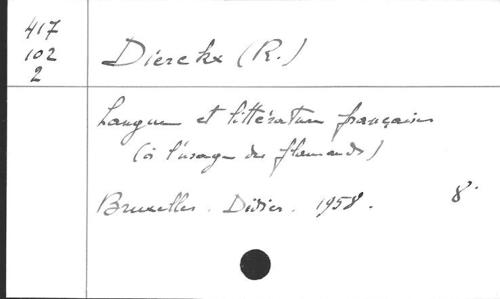 417
102
2
Dierckx (R.)
Langue et littérature françaises
(à l'usage des flamands)
Bruxelles. Didier. 1958.
8°